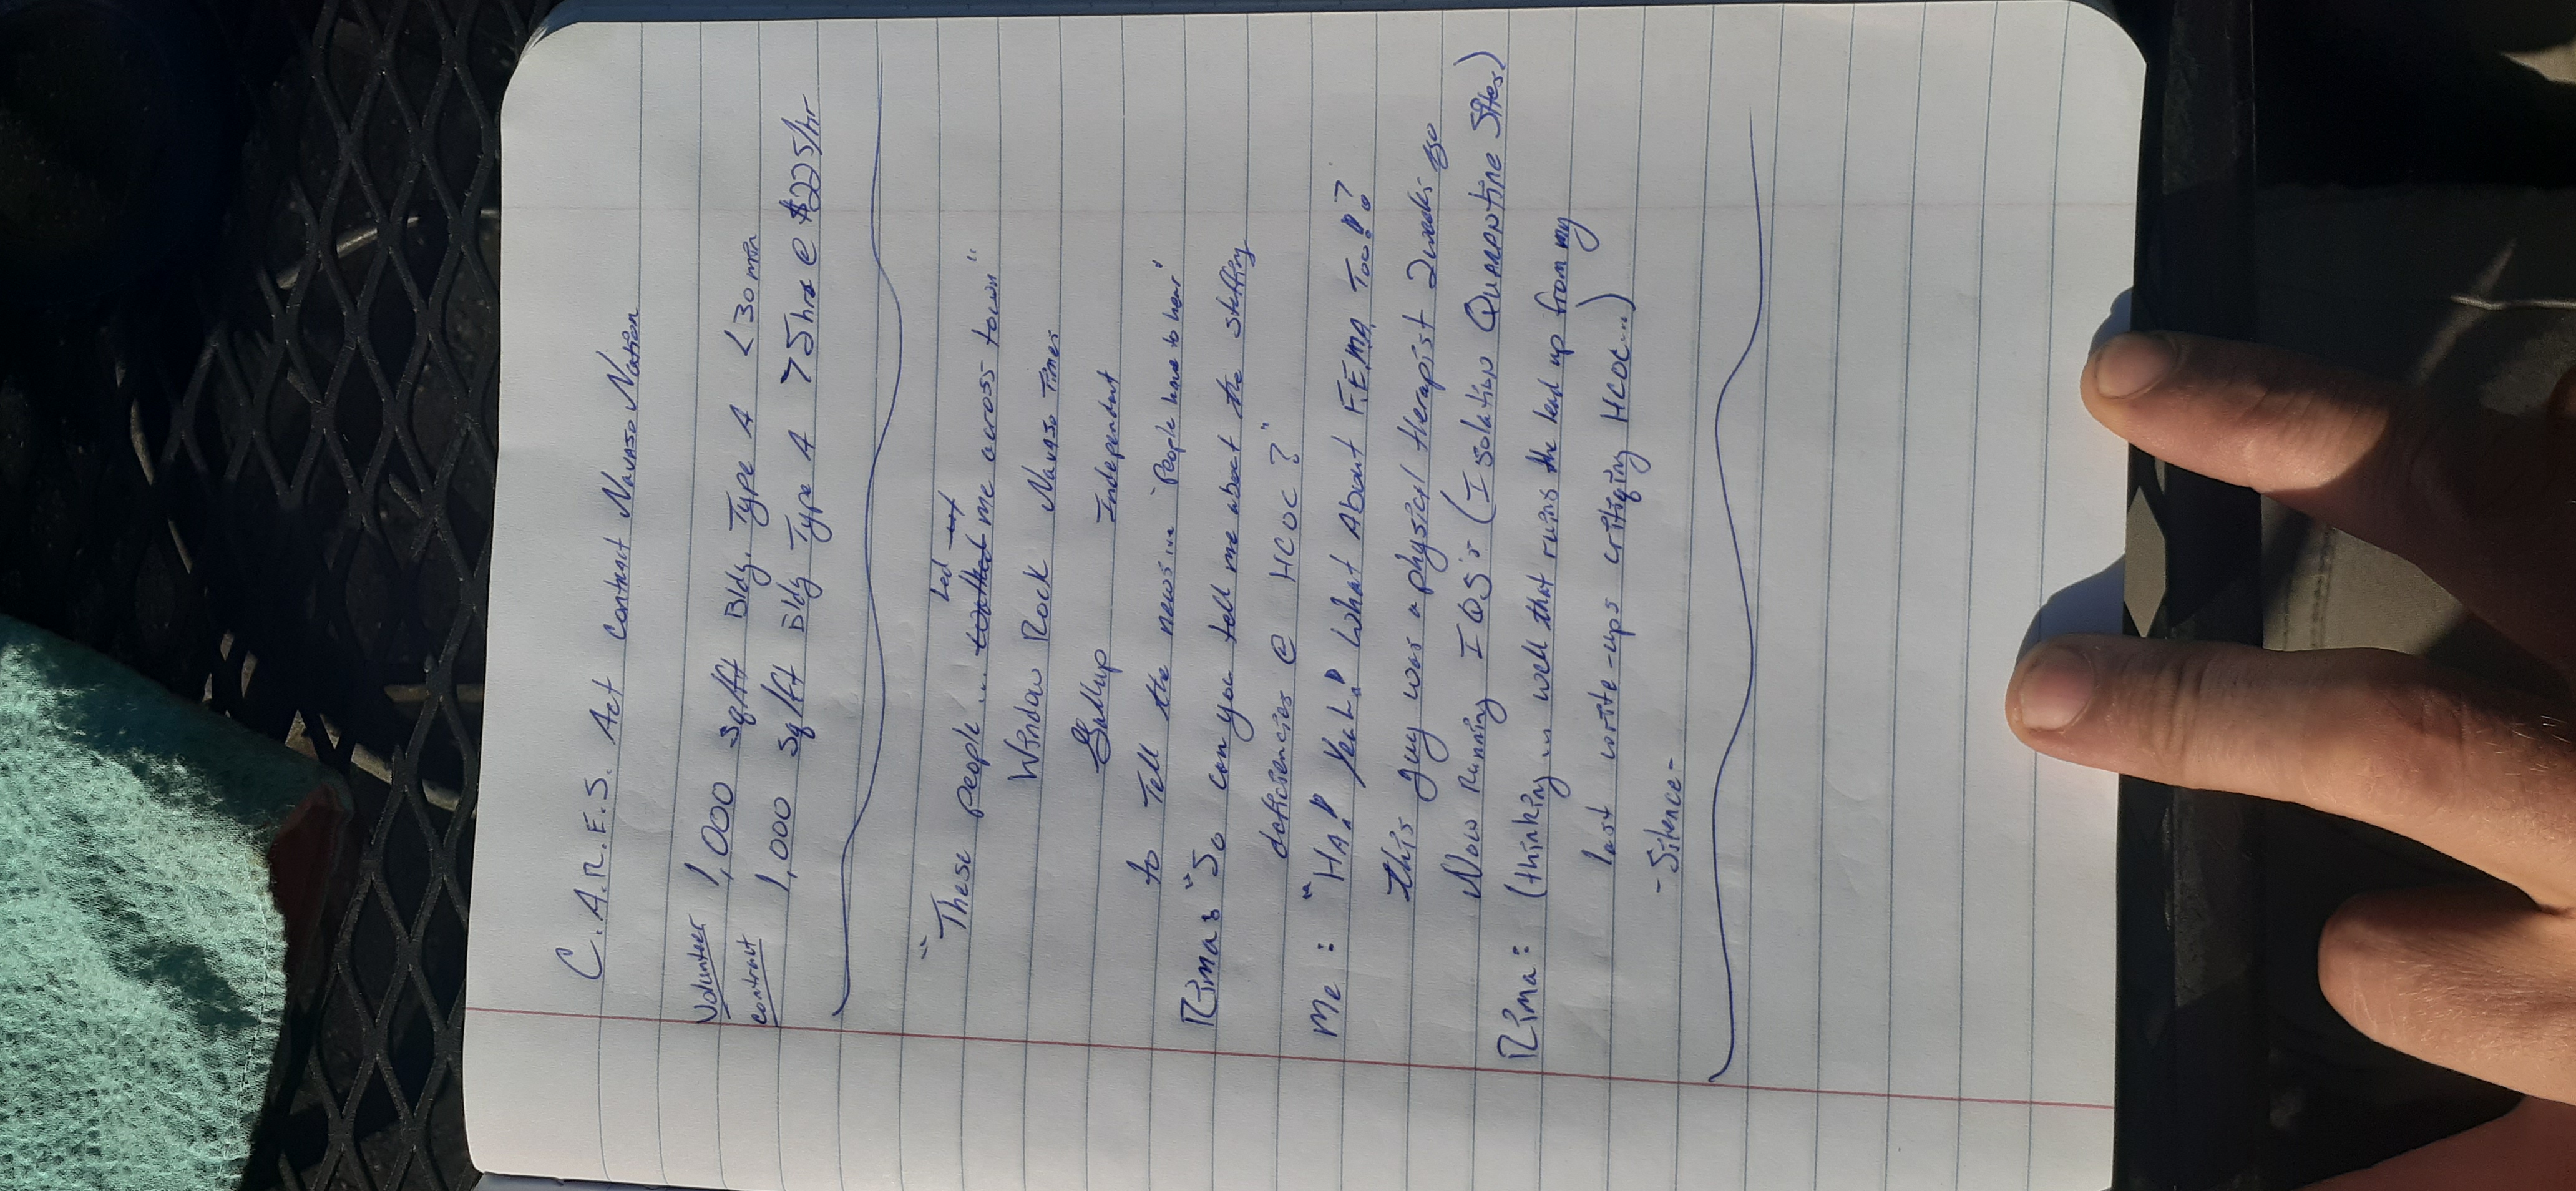 C.A.R.E.S. Act Contract Navajo Nation
Volunteer 1,000 sq/ft Bldg. Type A <30 min
Contract 1,000 sq/ft Bldg Type A >5hrs @ $225/hr
Led
"These people... me across town"
Window Rock Navajo Times
Gallup Independent
to Tell the news... 'People have to hear'
Rima: "So can you tell me about the staffing
deficiencies @ HCOC?"
Me: "HA! Yeah! What About FEMA Too!?
This guy was a physical therapist 2 weeks ago
Now running IQS: (Isolation Quarantine Sites)
Rima: (thinking... well that ruins the lead up from my
last write-ups critiquing HCOC...)
-Silence-